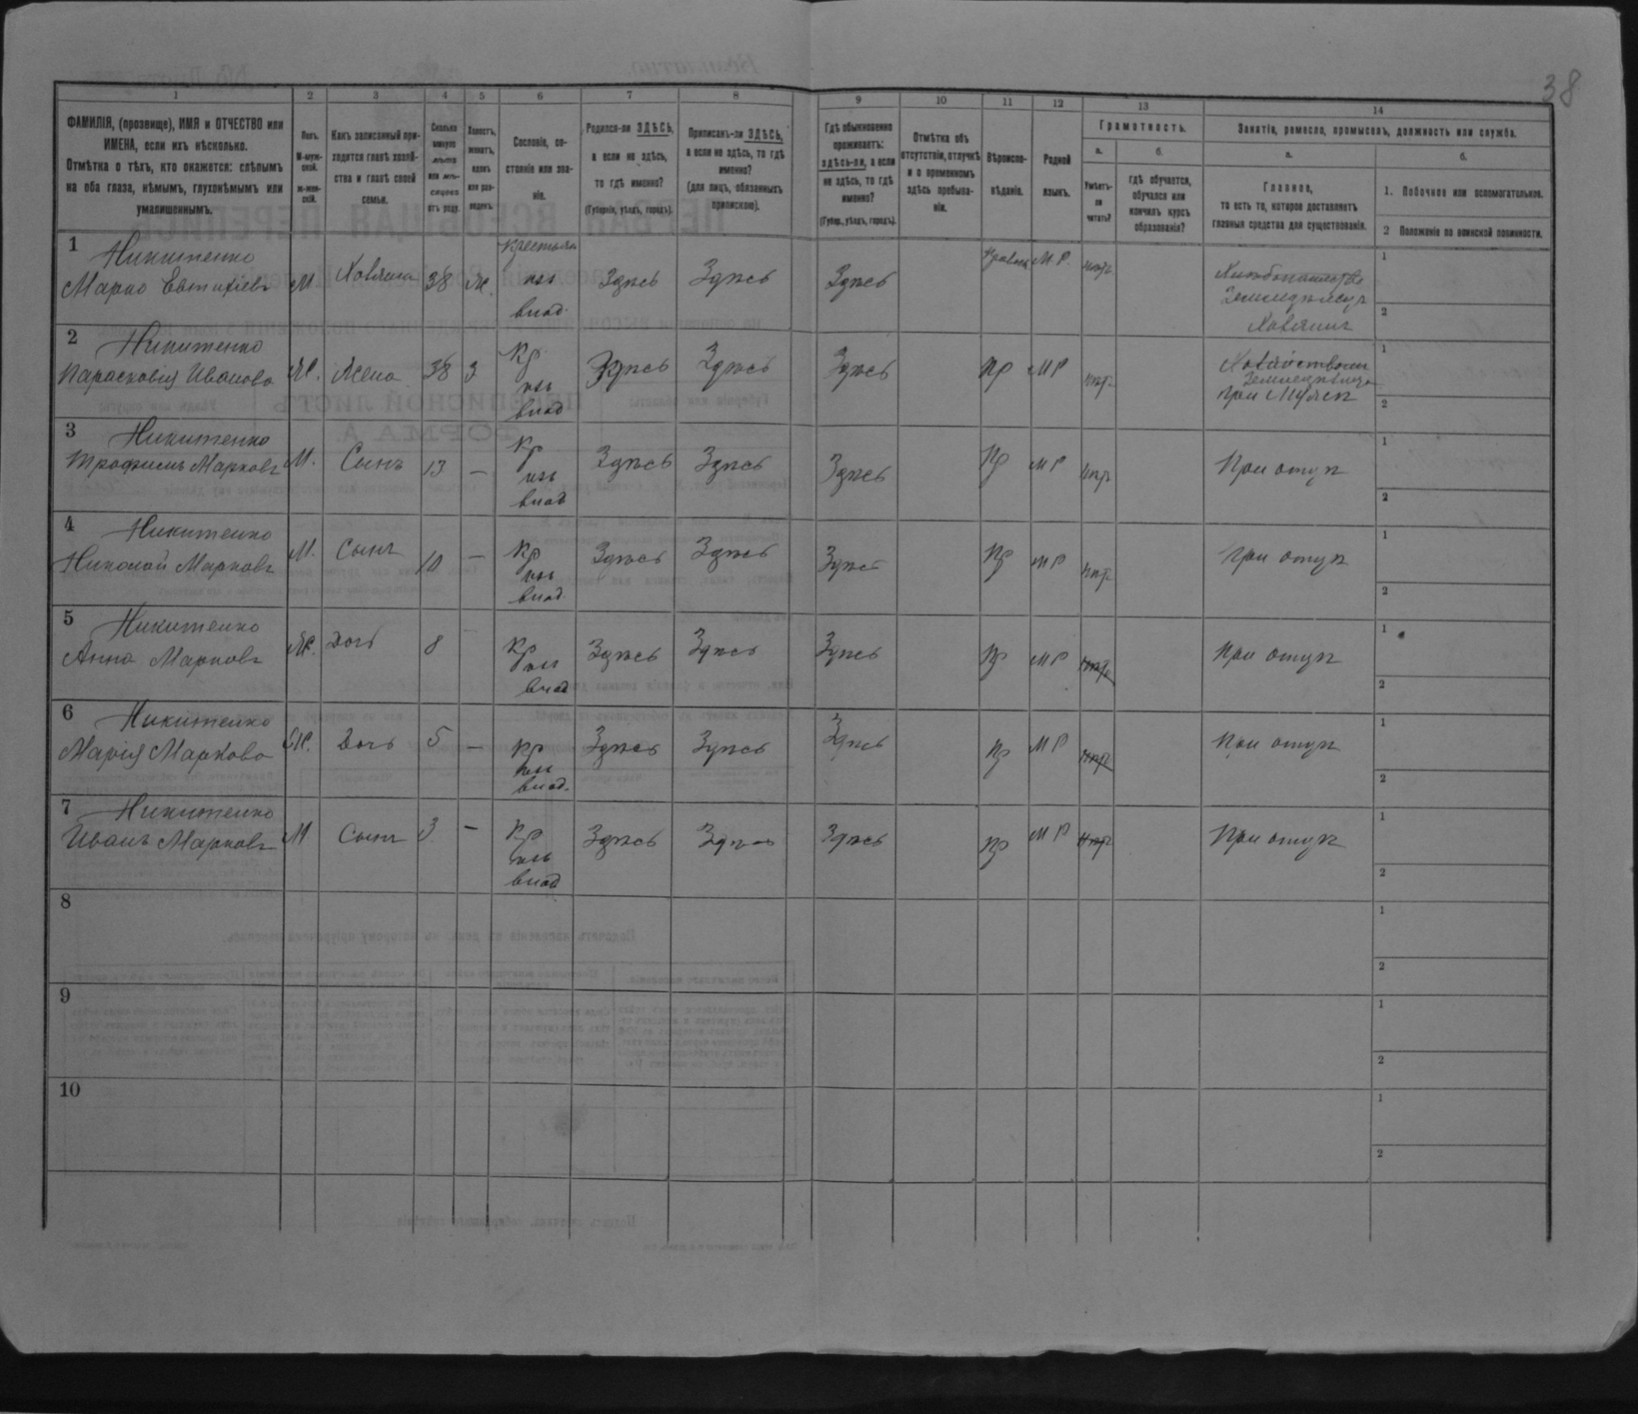 38
1 2 3 4 5 6 7 8 9 10 11 12 13 14
ФАМИЛІЯ, (прозвище), ИМЯ и ОТЧЕСТВО или
ИМЕНА, если ихъ нѣсколько.
Отмѣтка о тѣхъ, кто окажется: слѣпымъ
на оба глаза, нѣмымъ, глухонѣмымъ или
умалишеннымъ.
Полъ.
М-муж-
ской.
ж-жен-
скій.
Какъ записанный при-
ходится главѣ хозяй-
ства и главѣ своей
семьи.
Сколько
минуло
лѣтъ
или мѣ-
сяцевъ
отъ роду.
Холостъ,
женатъ,
вдовъ
или раз-
веденъ.
Сословіе, со-
стояніе или зва-
ніе.
Родился-ли ЗДѢСЬ,
а если не здѣсь,
то гдѣ именно?
(Губернія, уѣздъ, городъ).
Приписанъ-ли ЗДѢСЬ,
а если не здѣсь, то гдѣ
именно?
(для лицъ, обязанныхъ
припискою).
Гдѣ обыкновенно
проживаетъ:
здѣсь-ли, а если
не здѣсь, то гдѣ
именно?
(Губер., уѣздъ, городъ).
Отмѣтка объ
отсутствіи, отлучкѣ
и о временномъ
здѣсь пребыва-
ніи.
Вѣроиспо-
вѣданіе.
Родной
языкъ.
Грамотность.
а.
Умѣетъ-
ли
читать?
б.
гдѣ обучается,
обучался или
кончилъ курсъ
образованія?
Занятіе, ремесло, промыселъ, должность или служба.
а.
Главное,
то есть то, которое доставляетъ
главныя средства для существованія.
б.
1. Побочное или вспомогательное.
2 Положеніе по воинской повинности.
1 Никитенко
Марко Евтихіевъ М Хозяинъ 38 ж. Крестьян изъ влад. Здѣсь Здѣсь Здѣсь Правосл М.Р. нѣтъ
Земледѣлецъ
Хозяинъ
1
2
2 Никитенко
Парасковія Иванова Ж. Жена 38 З Кр изъ влад Здѣсь Здѣсь Здѣсь Пр МР нѣтъ
Земледѣлица
При Мужѣ
1
2
3 Никитенко
Трофимъ Марковъ М. Сынъ 13 — Кр изъ влад Здѣсь Здѣсь Здѣсь Пр МР нѣтъ При отцѣ
1
2
4 Никитенко
Николай Марковъ М. Сынъ 10 — Кр изъ влад. Здѣсь Здѣсь Здѣсь Пр МР нѣтъ При отцѣ
1
2
5 Никитенко
Анна Марковъ Ж. Дочь 8 Кр изъ влад Здѣсь Здѣсь Здѣсь Пр МР нѣтъ При отцѣ
1
2
6 Никитенко
Марія Маркова Ж. Дочь 5 — Кр изъ влад. Здѣсь Здѣсь Здѣсь Пр МР нѣтъ При отцѣ
1
2
7 Никитенко
Иванъ Марковъ М Сынъ 3 — Кр изъ влад Здѣсь Здѣсь Здѣсь Пр МР нѣтъ При отцѣ
1
2
8
1
2
9
1
2
10
1
2